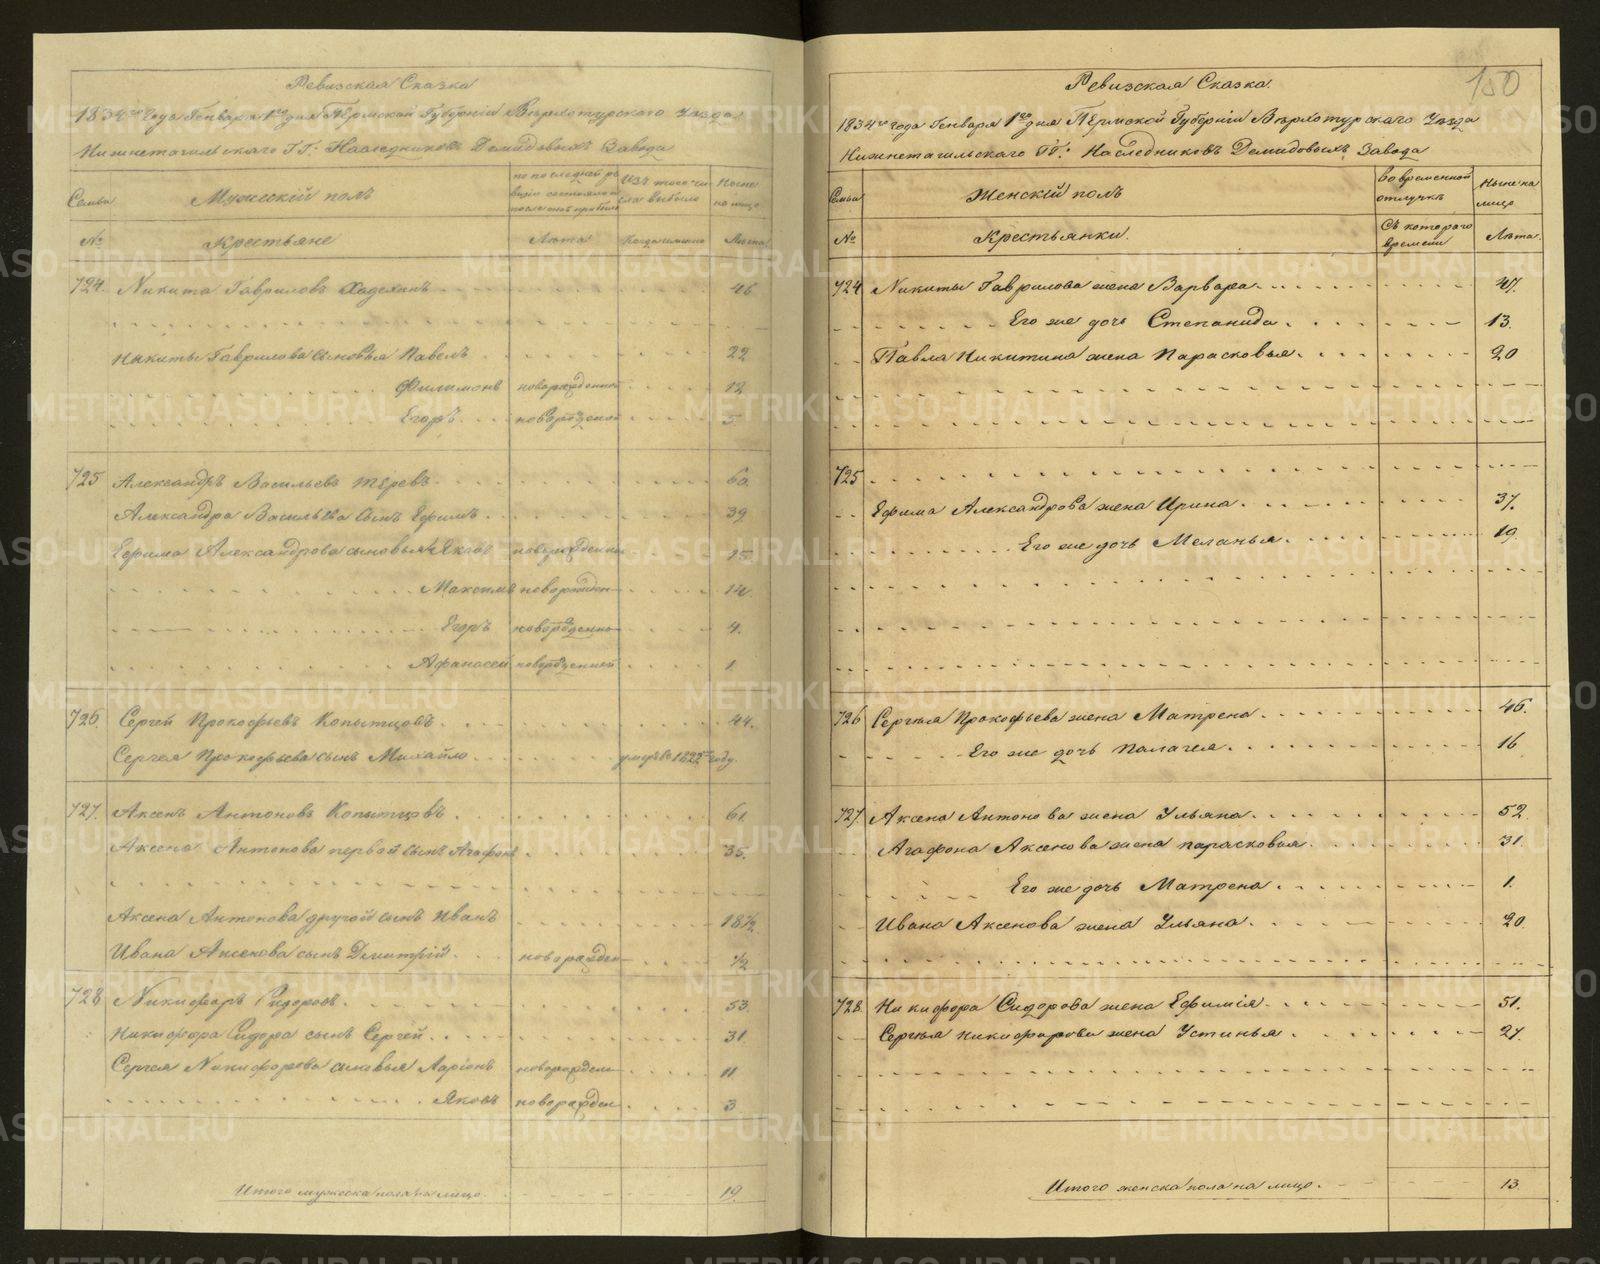 Ревизская Сказка
1834го года Генваря 1го дня Пермской Губерніи Верхотурскаго Уезда
Нижнетагильскаго ГГ: Наследниковъ Демидовыхъ Завода
Семьи
Мужескій полъ
по последней ре
визіи состояло и
после оной прибыло
Изъ того чи
сла выбыло
Ныне
на лицо
№
Крестьяне
Лета
Когда именно
Лета
724. Никита Гавриловъ 46
Никиты Гаврилова сыновья Павелъ 22
Филимонъ новорожденной 12
Егоръ новорожденной 5
725 Александръ Васильевъ 60
Александра Васильева сынъ Ефимъ 39
Ефима Александрова сыновья Яковъ новорожденны 15
Максимъ новорожден 14
Егоръ новорожденно 4.
Афанасей новорожденной 1
726 Сергей Прокофьевъ Копытцовъ 44.
Сергея Прокофьева сынъ Михайло умре въ году.
727. Аксенъ Антоновъ Копытцовъ 61.
Аксена Антонова первой сынъ Агафонъ 35.
Аксена Антонова другой сынъ Иванъ 18½
Ивана Аксенова сынъ Дмитрій новорожден ½
728 Никифоръ Сидоровъ 53.
Никифора Сидора сынъ Сергей 31.
Сергея Никифорова сыновья Ларіонъ новорожден 11
Яковъ новорожден 3
Итого мужеска пола на лицо 19.
150
Ревизская Сказка.
1834го года Генваря 1го дня Пермской Губерніи Верхотурскаго Уезда
Нижнетагильскаго ГГ: Наследниковъ Демидовыхъ Завода
Семьи
Женскій полъ
Во временной
отлучке
Ныне на
лицо
№
Крестьянки.
Съ котораго
времени
Лета.
724 Никиты Гаврилова жена Варвара 47.
Его же дочь Степанида 13.
Павла Никитина жена Парасковья 20
725
Ефима Александрова жена Ирина 37.
Его же дочь Меланья 19.
726 Сергея Прокофьева жена Матрена 46.
Его же дочь Палагея 16
727. Аксена Антонова жена Ульяна 52.
Агафона Аксенова жена Парасковья 31.
Его же дочь Матрена 1.
Ивана Аксенова жена Ульяна 20.
728. Никифора Сидорова жена Ефимія 51.
Сергея Никифорова жена Устинья 27.
Итого женска пола на лицо 13.
METRIKI.GASO-URAL.RU